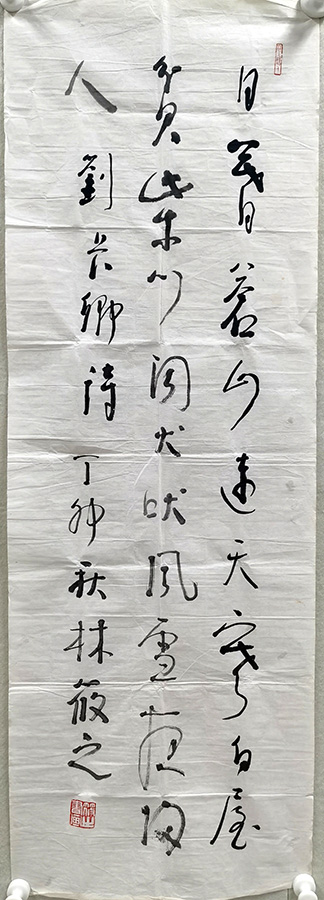 日暮蒼山遠天寒白屋
貧柴門聞犬吠風雪夜歸
人劉長卿詩丁卯秋林筱之